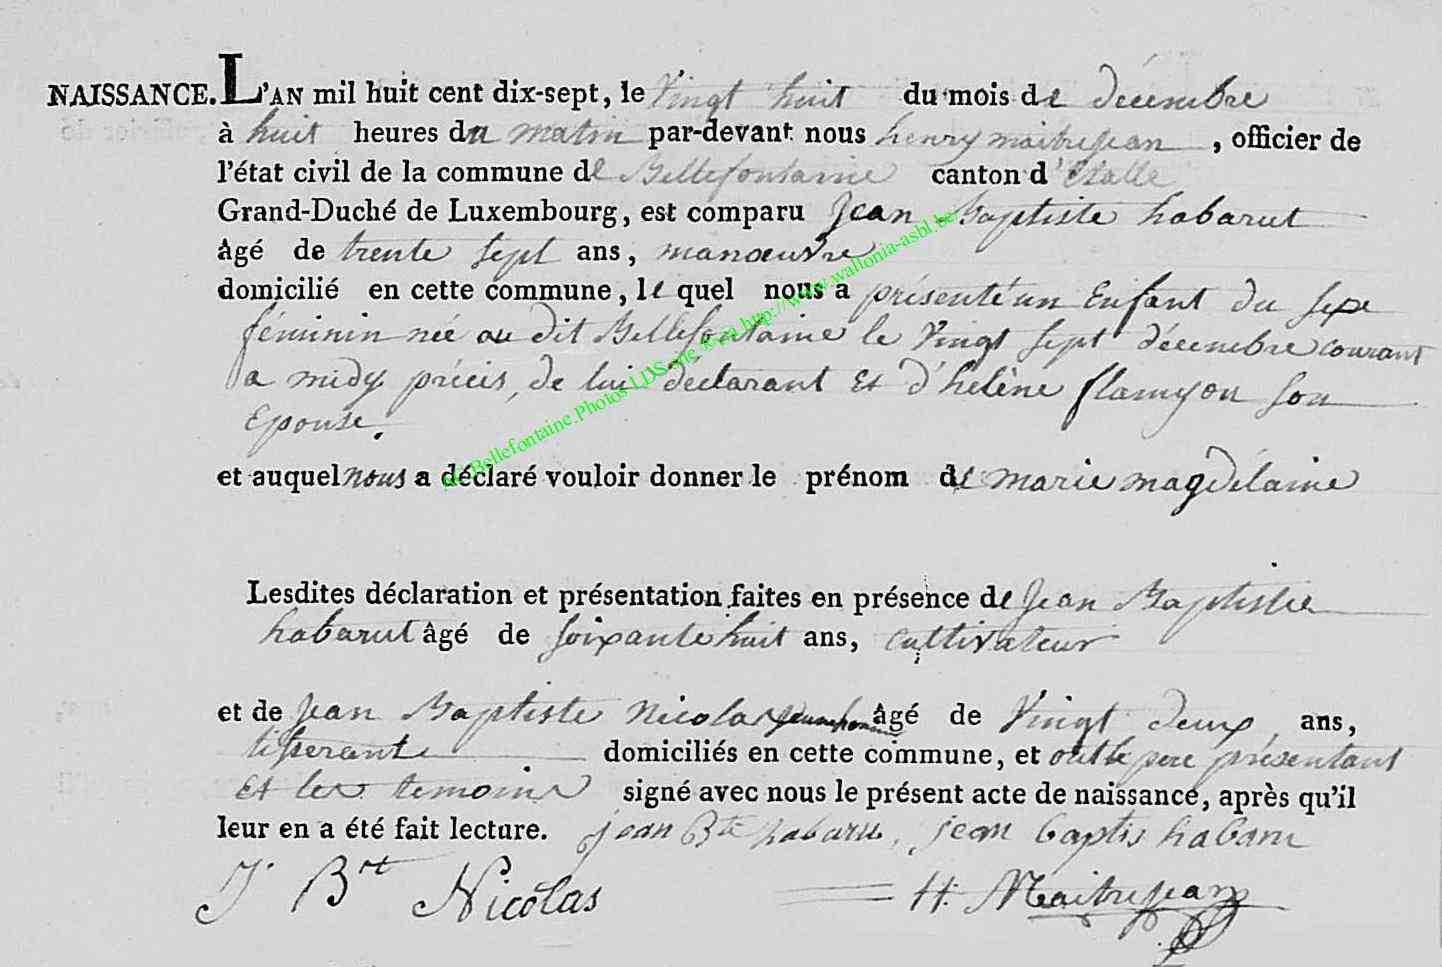 NAISSANCE. L'AN mil huit cent dix-sept, le Vingt huit du mois de décembre
à huit heures du matin par-devant nous henry maitrejean, officier de
l'état civil de la commune de Bellefontaine canton d'Etalle
Grand-Duché de Luxembourg, est comparu Jean Baptiste habarut
âgé de trente Sept ans, manœuvre
domicilié en cette commune, le quel nous a présenté un Enfant du Sexe
féminin née au dit Bellefontaine le Vingt Sept décembre courant
a midy précis, de lui déclarant Et d'hélène flamyon Son
Epouse.
et auquel nous a déclaré vouloir donner le prénom de marie magdelaine
Lesdites déclaration et présentation faites en présence de Jean Baptiste
habarut âgé de Soixante huit ans, cultivateur
et de Jean Baptiste Nicolas âgé de Vingt deux ans,
tisserant domiciliés en cette commune, et ont le pere présentant
Et les temoins signé avec nous le présent acte de naissance, après qu'il
leur en a été fait lecture. jean Bte habaru, jean baptis habaru
J. Bt Nicolas H. Maitrejean
Bellefontaine.Photos LDS site via http://www.wallonia-asbl.be/